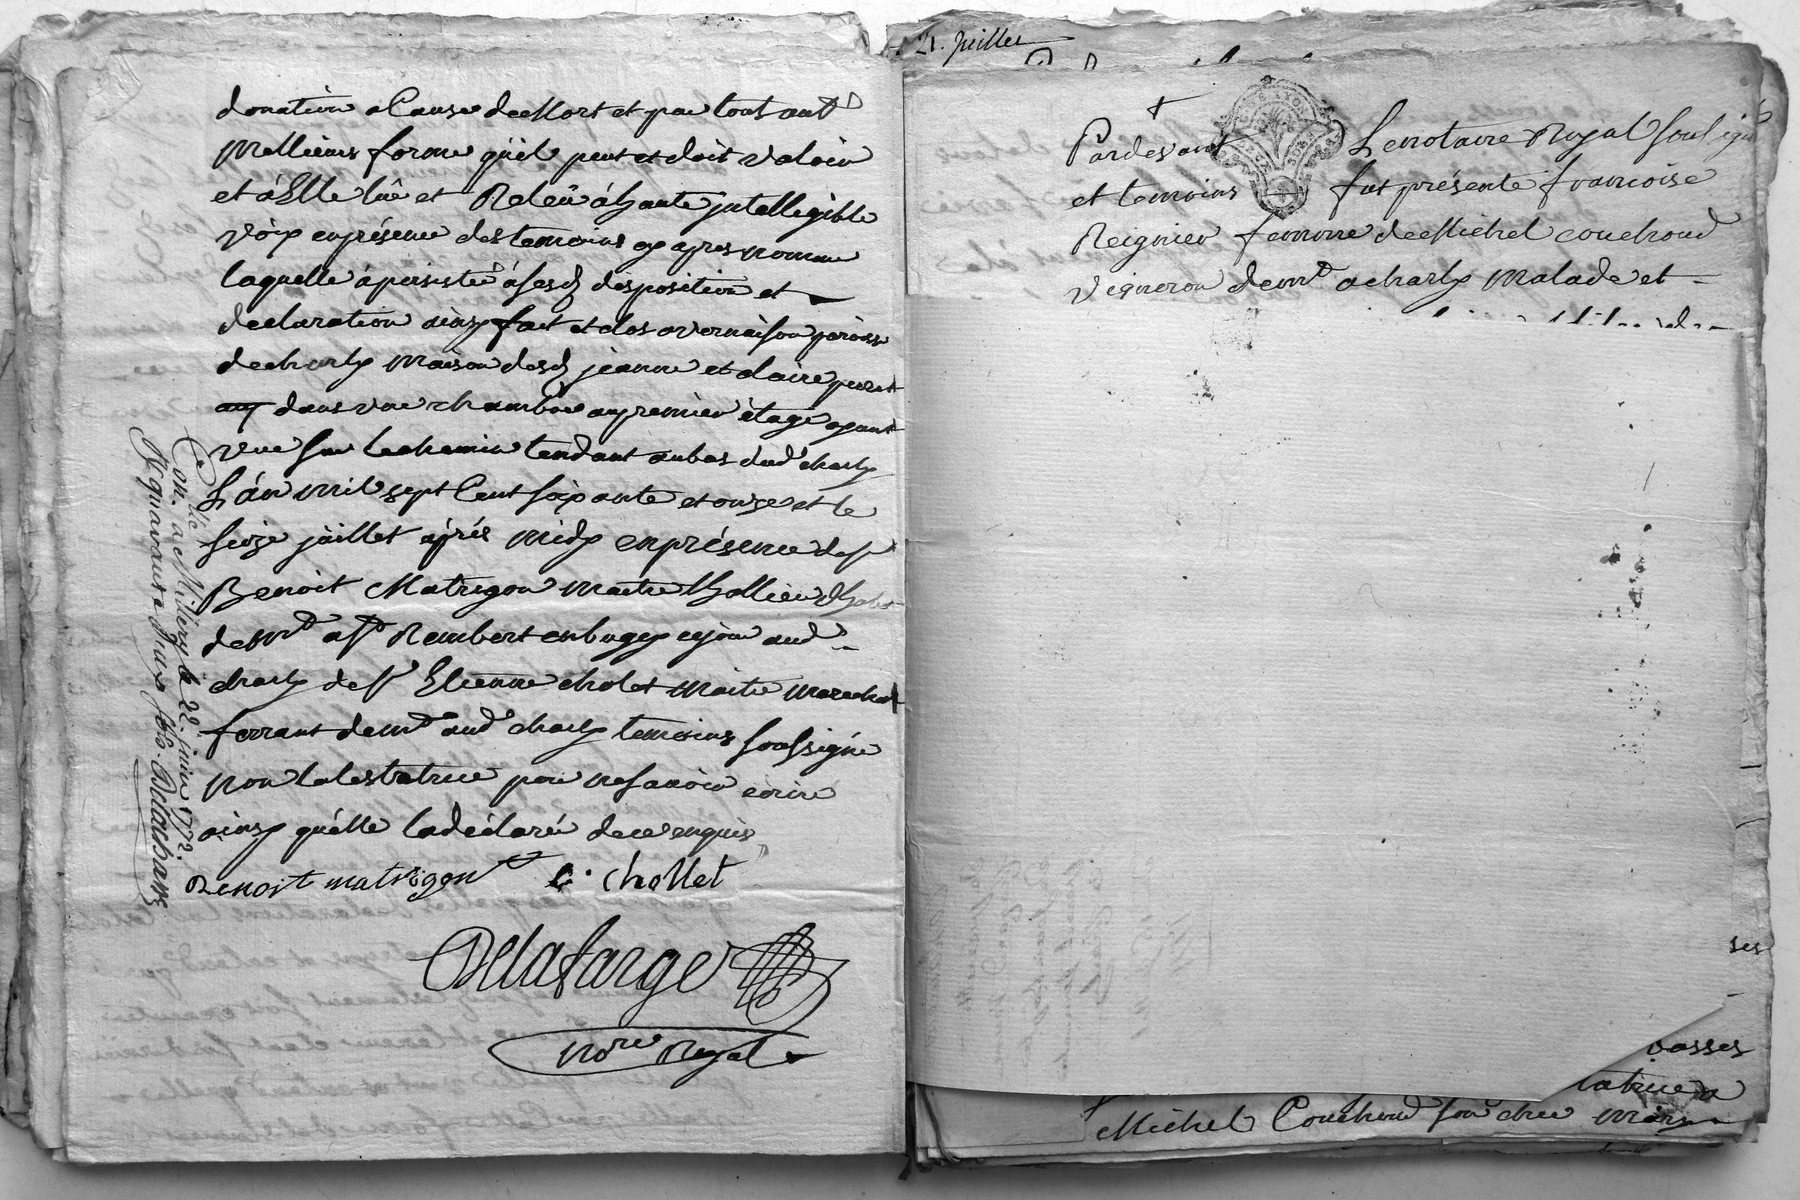 donation a Cause de Mort et par tout autre
Mellieure forme qu'il peut et doit valoir
et á Elle lûe et Releüe á hautte jntellegible
Voix en présence des temoins cy apres nommé
laquelle à persisté à sesd. disposition et
declaration ainsy fait et clos a vernaison paroisse
de charly Maison desd. jeanne et claire
dans une chambre au premier étage ayant
Vue sur le chemin tendant au bas dud. charly
L'án mil sept Cent soixante et onze et le
seize jüillet aprés midy en présence de sr
Benoit Matrigon maitre
de mt a st Rembert en bugey ce jour aud.
charly de sr Etienne cholet maitre marechal
ferrant demt aud. charly temoins soussigné
non la testatrice pour ne savoir écrire
ainsy qu'elle la declaré de ce enquis
Benoit matrigon E. Chollet
Delafarge
nore Royal
Conlé à Millery le 22. juin 1772.
Delachans
21. Juillet
Pardevant Le notaire Royal soussigné
et temoins fut présente francoise
Reignier femme de Michel couchoud
Vigneron demt a charly malade et
ses
tatrice a
Michel Couchoud son cher mary